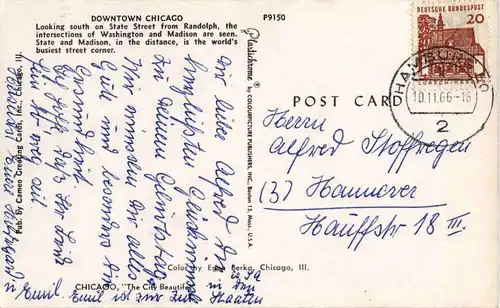 DOWNTOWN CHICAGO
Looking south on State Street from Randolph, the
intersections of Washington and Madison are seen.
State and Madison, in the distance, is the world's
busiest street corner.
P9150
Pub. by Cameo Greeting Cards, Inc., Chicago, Ill.
Plastichrome ®
by COLOURPICTURE PUBLISHERS, INC., Boston 15, Mass., U.S.A.
POST CARD
DEUTSCHE BUNDESPOST
20
HAMBURG
10.11.66-18
2
Herrn
Alfred Stoffregen
(3) Hannover
Hauffstr 18 III.
Dir lieber Alfred die
herzlichsten Glückwünsche
zu Deinem Geburtstag.
Wir wünschen Dir alles
Gute und besonders
Gesundheit.
Color by Ernst Berka, Chicago, Ill.
CHICAGO, "The City Beautiful"
Emil Emil ist zur Zeit in den Staaten